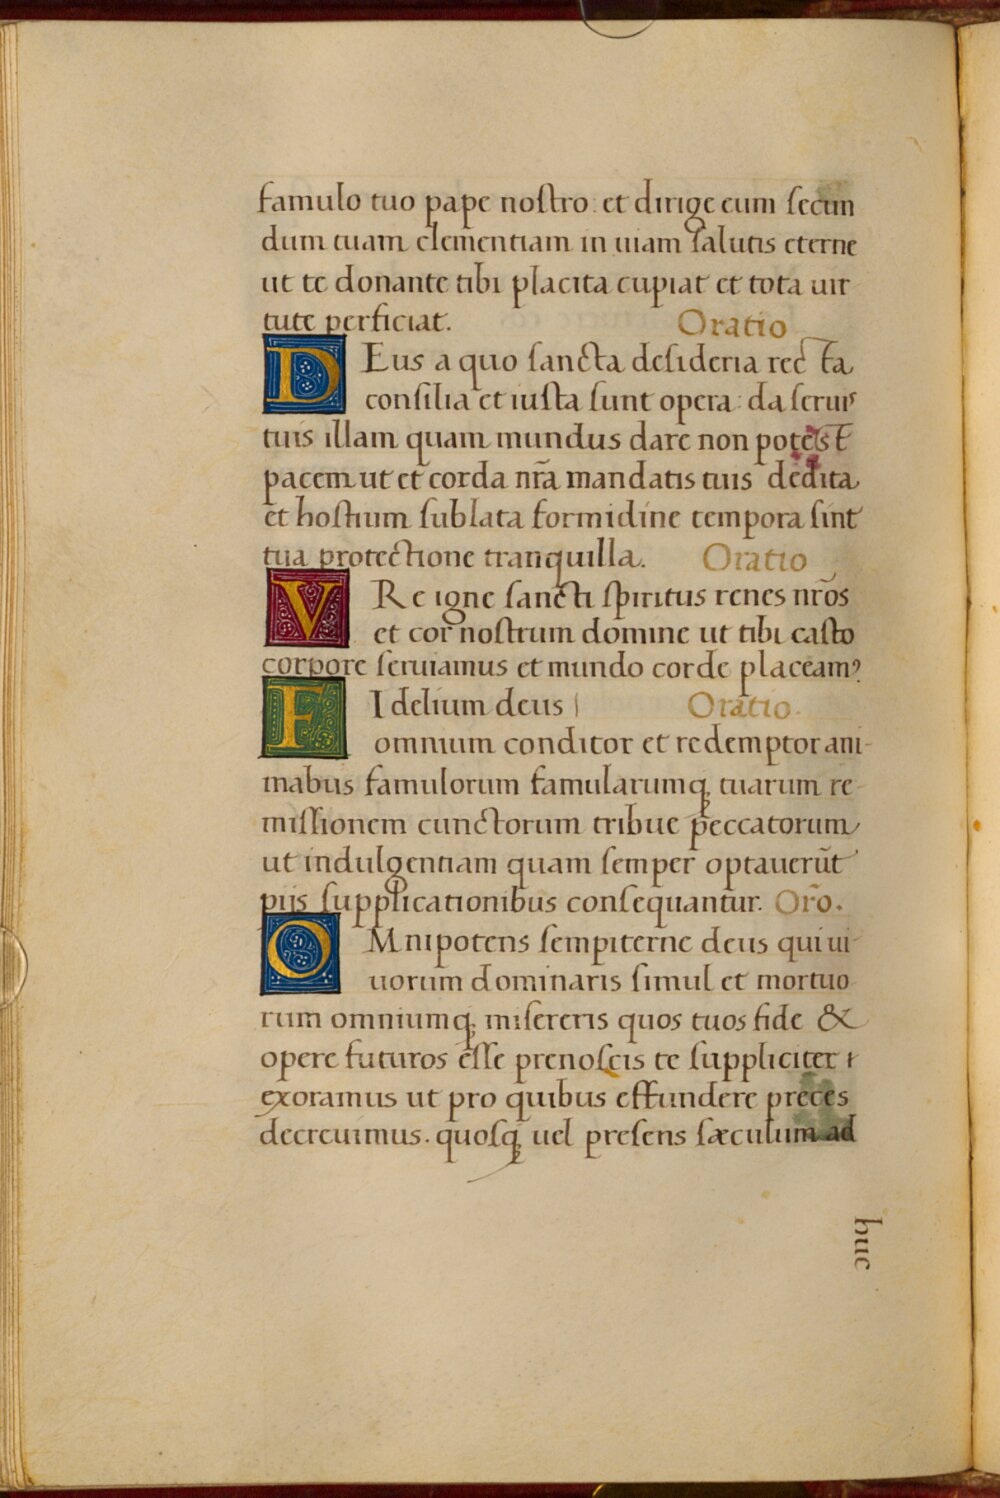 famulo tuo pape nostro: et dirige eum secun
dum tuam clementiam in uiam salutis eterne
ut te donante tibi placita cupiat et tota uir
tute perficiat. Oratio
DEus a quo sancta desideria recta
consilia et iusta sunt opera: da seruis
tuis illam quam mundus dare non potest
pacem ut et corda nr̄a mandatis tuis dedita
et hostium sublata formidine tempora sint
tua protectione tranquilla. Oratio
VRe igne sancti spiritus renes nr̄os
et cor nostrum domine ut tibi casto
corpore seruiamus et mundo corde placeamꝰ.
FIdelium deus Oratio.
omnium conditor et redemptor ani-
mabus famulorum famularumq; tuarum re-
missionem cunctorum tribue peccatorum
ut indulgentiam quam semper optauerūt
piis supplicationibus consequantur. Orō.
OMnipotens sempiterne deus qui ui-
uorum dominaris simul et mortuo
rum omniumq; misereris quos tuos fide &
opere futuros esse prenoscis te suppliciter
exoramus ut pro quibus effundere preces
decreuimus. quosq; uel presens sæculum ad
huc